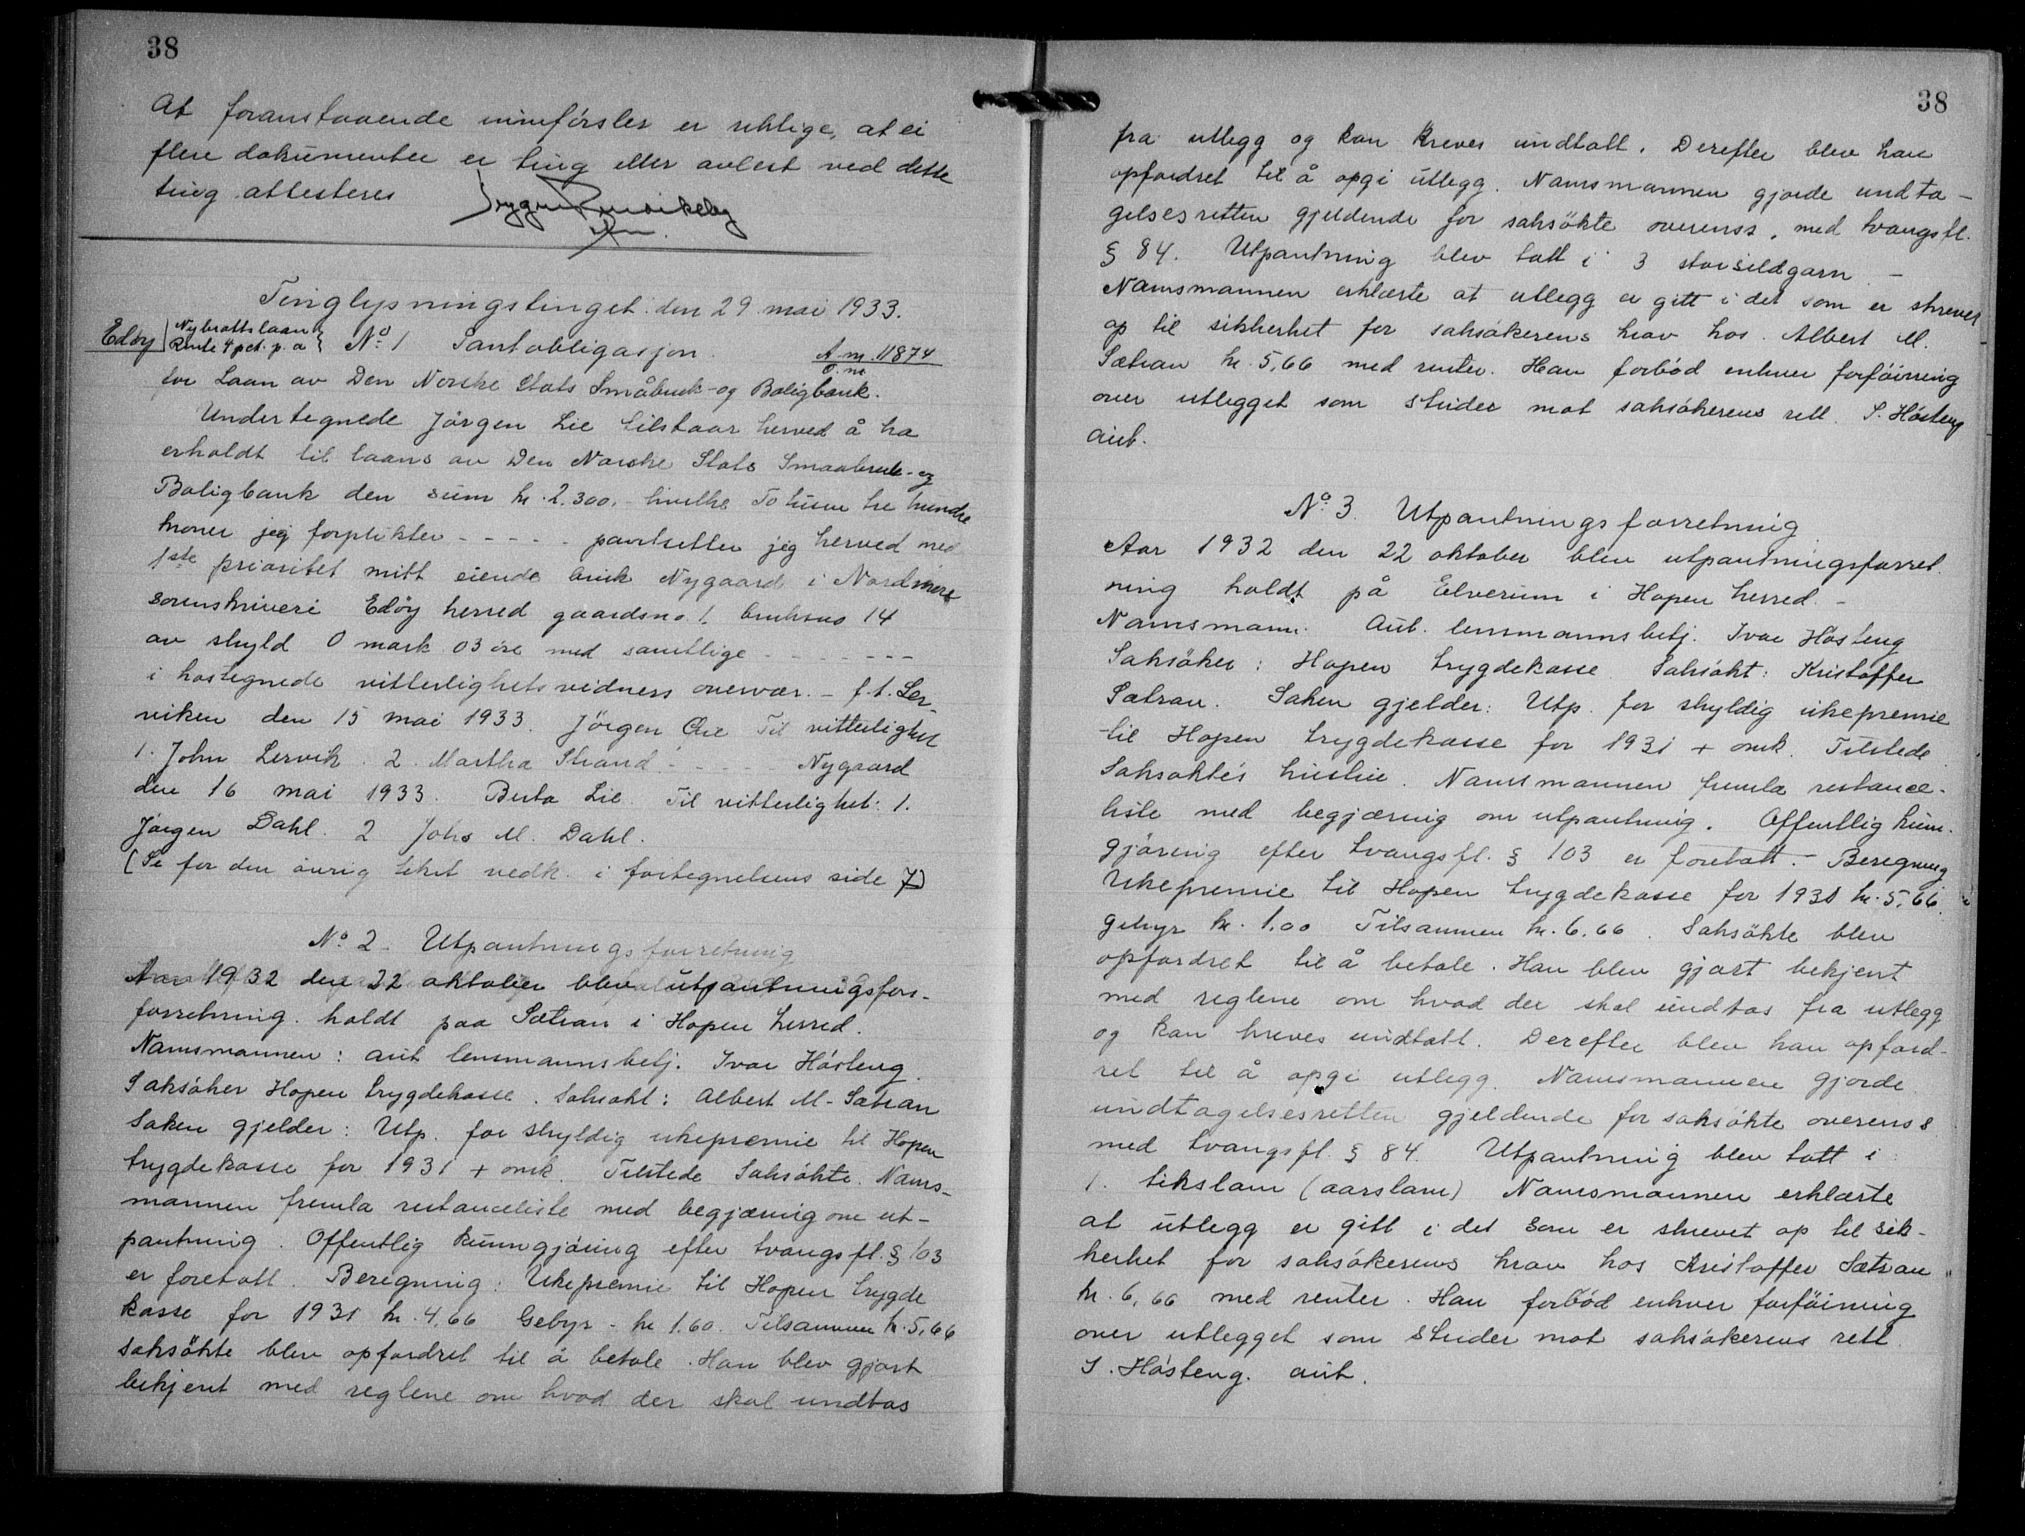 38
At foranstaaende innførsler er riktige, at ei
flere dokumenter er ting eller avlest ved dette
ting attesteres
Tinglysningstinget den 29 mai 1933.
Edøy Nybrottslaan Rente 4 pct. p. a No 1 Pantobligasjon. A. m. 11874
O. m
for Laan av Den Norske Stats Småbruk- og Boligbank.
Undertegnede Jørgen Lie tilstaar herved å ha
erholdt til laans av Den Norske Stats Smaabruk- og
Boligbank den sum kr. 2.300.- hvilke To tusen tre hundre
kroner jeg forplikter - - - - - pantsetter jeg herved med
1ste prioritet mitt eiende bruk Nygaard i Nordmøre
sorenskriveri Edøy herred gaardsno. 1. bruksno 14
av skyld 0 mark 03 øre med samtlige - - - - - - -
i hostegnede vitterlighetsvidners overvær. - f. t. Ler-
viken den 15 mai 1933. Jörgen Lie Til vitterlighet
1. John Lervik. 2. Martha Strand. - - - - - Nygaard
den 16 mai 1933. Berta Lie. Til vitterlighet: 1.
Jørgen Dahl. 2 Johs M. Dahl.
(Se for den øvrig tekst vedk. i fortegnelsens side 7)
No. 2. Utpantningsforretning
Aar 1932 den 22 oktober blev utpantningsfors-
forretning holdt paa Sætran i Hopen herred.
Namsmannen: aut lensmannsbetj. Ivar Høsteng.
Saksøker Hopen trygdekasse. Saksøkt: Albert M. Sætran
Saken gjelder: Utp. for skyldig ukepremie til Hopen
trygdekasse for 1931 + omk. Tilstede Saksøkte. Nams-
mannen fremla restanceliste med begjæring om ut-
pantning. Offentlig kunngjøring efter tvangsfl. § 103
er foretatt. Beregning: Ukepremie til Hopen trygde
kasse for 1931 kr. 4,66 Gebyr - kr 1.60. Tilsammen kr. 5,66
Saksøkte blev opfordret til å betale. Han blev gjort
bekjent med reglene om hvad der skal undtas
38
fra utlegg og kan kreves undtatt. Derefter blev han
opfordret til å opgi utlegg. Namsmannen gjorde undta-
gelsesretten gjeldende for saksökte overenss. med tvangsfl.
§ 84. Utpantning blev tatt i 3 storsildgarn -
Namsmannen erklærte at utlegg er gitt i det som er skrevet
op til sikkerhet for saksøkerens krav hos Albert M.
Sætran kr. 5,66 med renter. Han forbød enhver forføining
over utlegget som strider mot saksøkerens rett. I. Høsteng
aut.
No. 3. Utpantningsforretning
Aar 1932 den 22 oktober blev utpantningsforret
ning holdt på Elverum i Hopen herred. -
Namsmann. Aut. lensmannsbetj. Ivar Høsteng
Saksøker: Hopen trygdekasse. Saksøkt: Kristoffer
Sætran. Saken gjelder: Utp. for skyldig ukepremie
til Hopen trygdekasse for 1931 + omk. Tilstede
Saksøktes hustru. Namsmannen fremla restance-
liste med begjæring om utpantning. Offentlig kunn-
gjøring efter tvangsfl. § 103 er foretatt. - Beregning
Ukepremie til Hopen trygdekasse for 1931 kr. 5,66.
gebyr kr. 1.00 Tilsammen kr. 6.66. Saksøkte blev
opfordret til å betale. Han blev gjort bekjent
med reglene om hvad der skal undtas fra utlegg
og kan kreves undtatt. Derefter blev han opford-
ret til å opgi utlegg. Namsmannen gjorde
undtagelsesretten gjeldende for saksøkte overenss
med tvangsfl. § 84. Utpantning blev tatt i
1. tikslam (aarslam) Namsmannen erklærte
at utlegg er gitt i det som er skrevet op til sik-
kerhet for saksøkerens krav hos Kristoffer Sætran
kr. 6,66 med renter. Han forbød enhver forføining
over utlegget som strider mot saksøkerens rett.
I. Høsteng. aut.